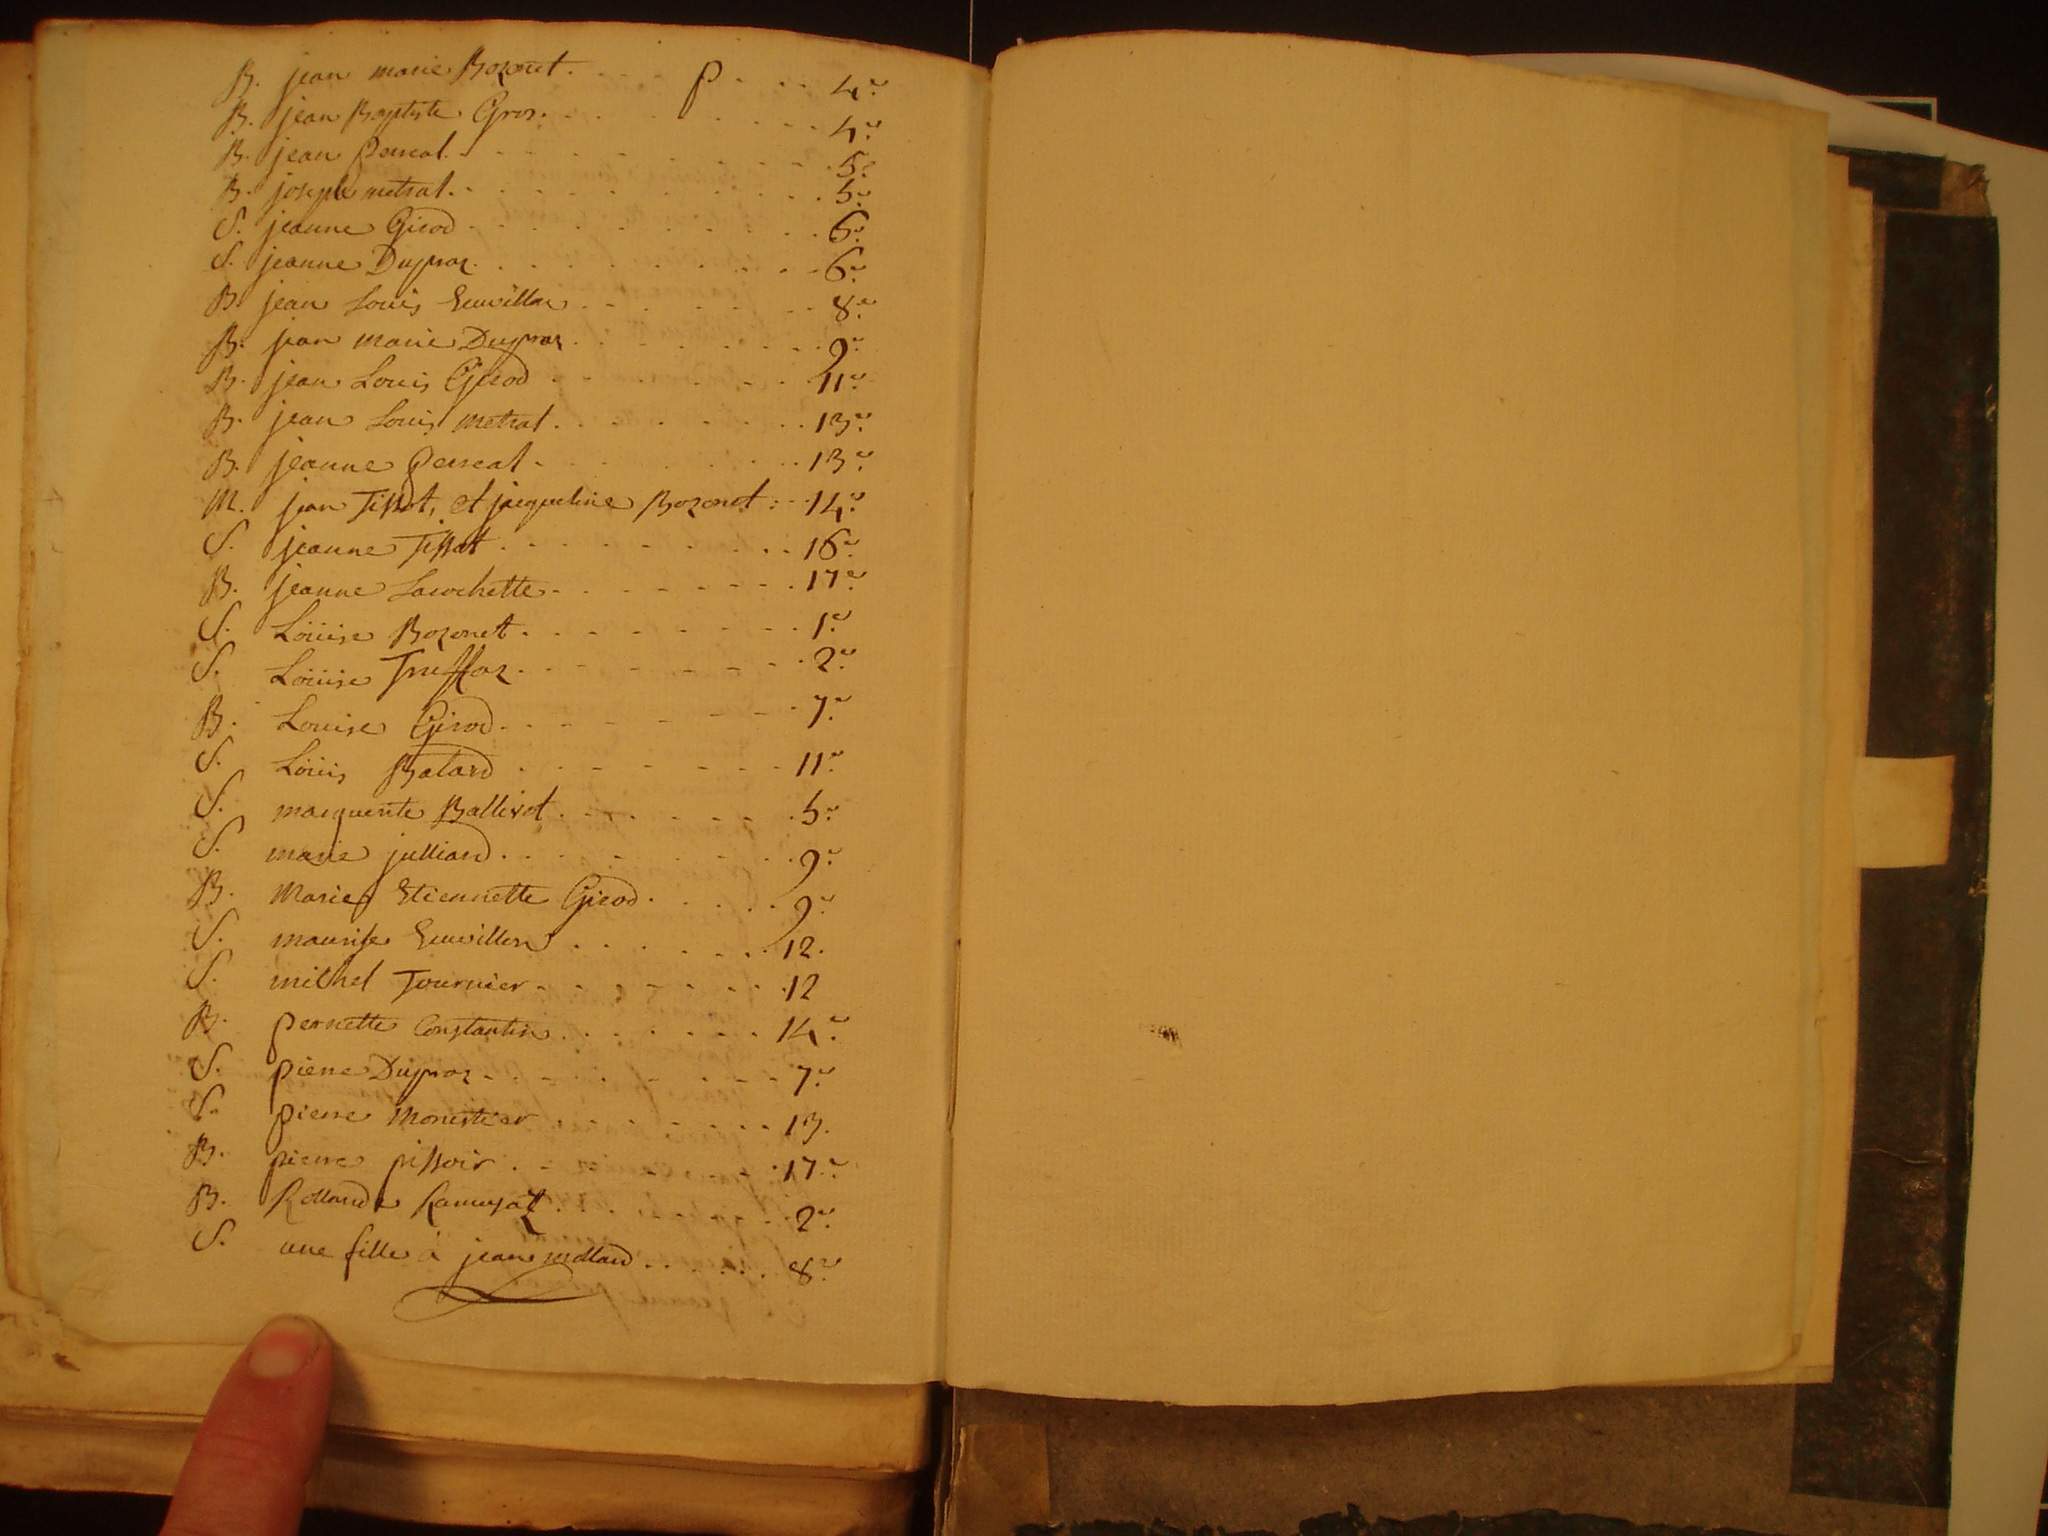 B. jean marie Bozonet. . . . p . . . 4.e
B. jean Baptiste Gros. . . . . . . . . 4.e
B. jean perreal. . . . . . . . . . . 5.e
B. joseph metral. . . . . . . . . . . 5.e
S. jeanne Girod . . . . . . . . . . . 6.e
S. jeanne Dupraz . . . . . . . . . . 6.e
B. jean Louis Emvillon . . . . . . . 8.e
B. jean marie Dupraz . . . . . . . . 9.e
B. jean Louis Girod . . . . . . . . 11.e
B. jean Louis metral . . . . . . . . 13.e
B. jeanne perreal . . . . . . . . . 13.e
M. jean Tissot, et jacqueline Bozonet : . . 14.e
S. jeanne Tissot . . . . . . . . . 16.e
B. jeanne Larochette . . . . . . . . 17.e
S. Loüise Bozonet . . . . . . . . . 1.e
S. Loüise Truffaz . . . . . . . . . 2.e
B. Louise Girod . . . . . . . . . 7.e
S. Loüis Balard . . . . . . . . . 11.e
S. marguerite Ballivet . . . . . . . 5.e
S. marie julliard . . . . . . . . . 9.e
B. Marie Etiennette Girod . . . . . . 9.e
S. maurise Emvillon . . . . . . . . 12.
S. michel Tournier . . . . . . . . 12
B. pernette Constantin . . . . . . . 14.e
S. pierre Dupraz . . . . . . . . . 7.e
S. pierre Monestier . . . . . . . . 13.
B. pierre pissoir . . . . . . . . 17.e
B. Rollande Ramusat . . . . . . . 2.e
S. une fille à jean mollard . . . . . . 8.e